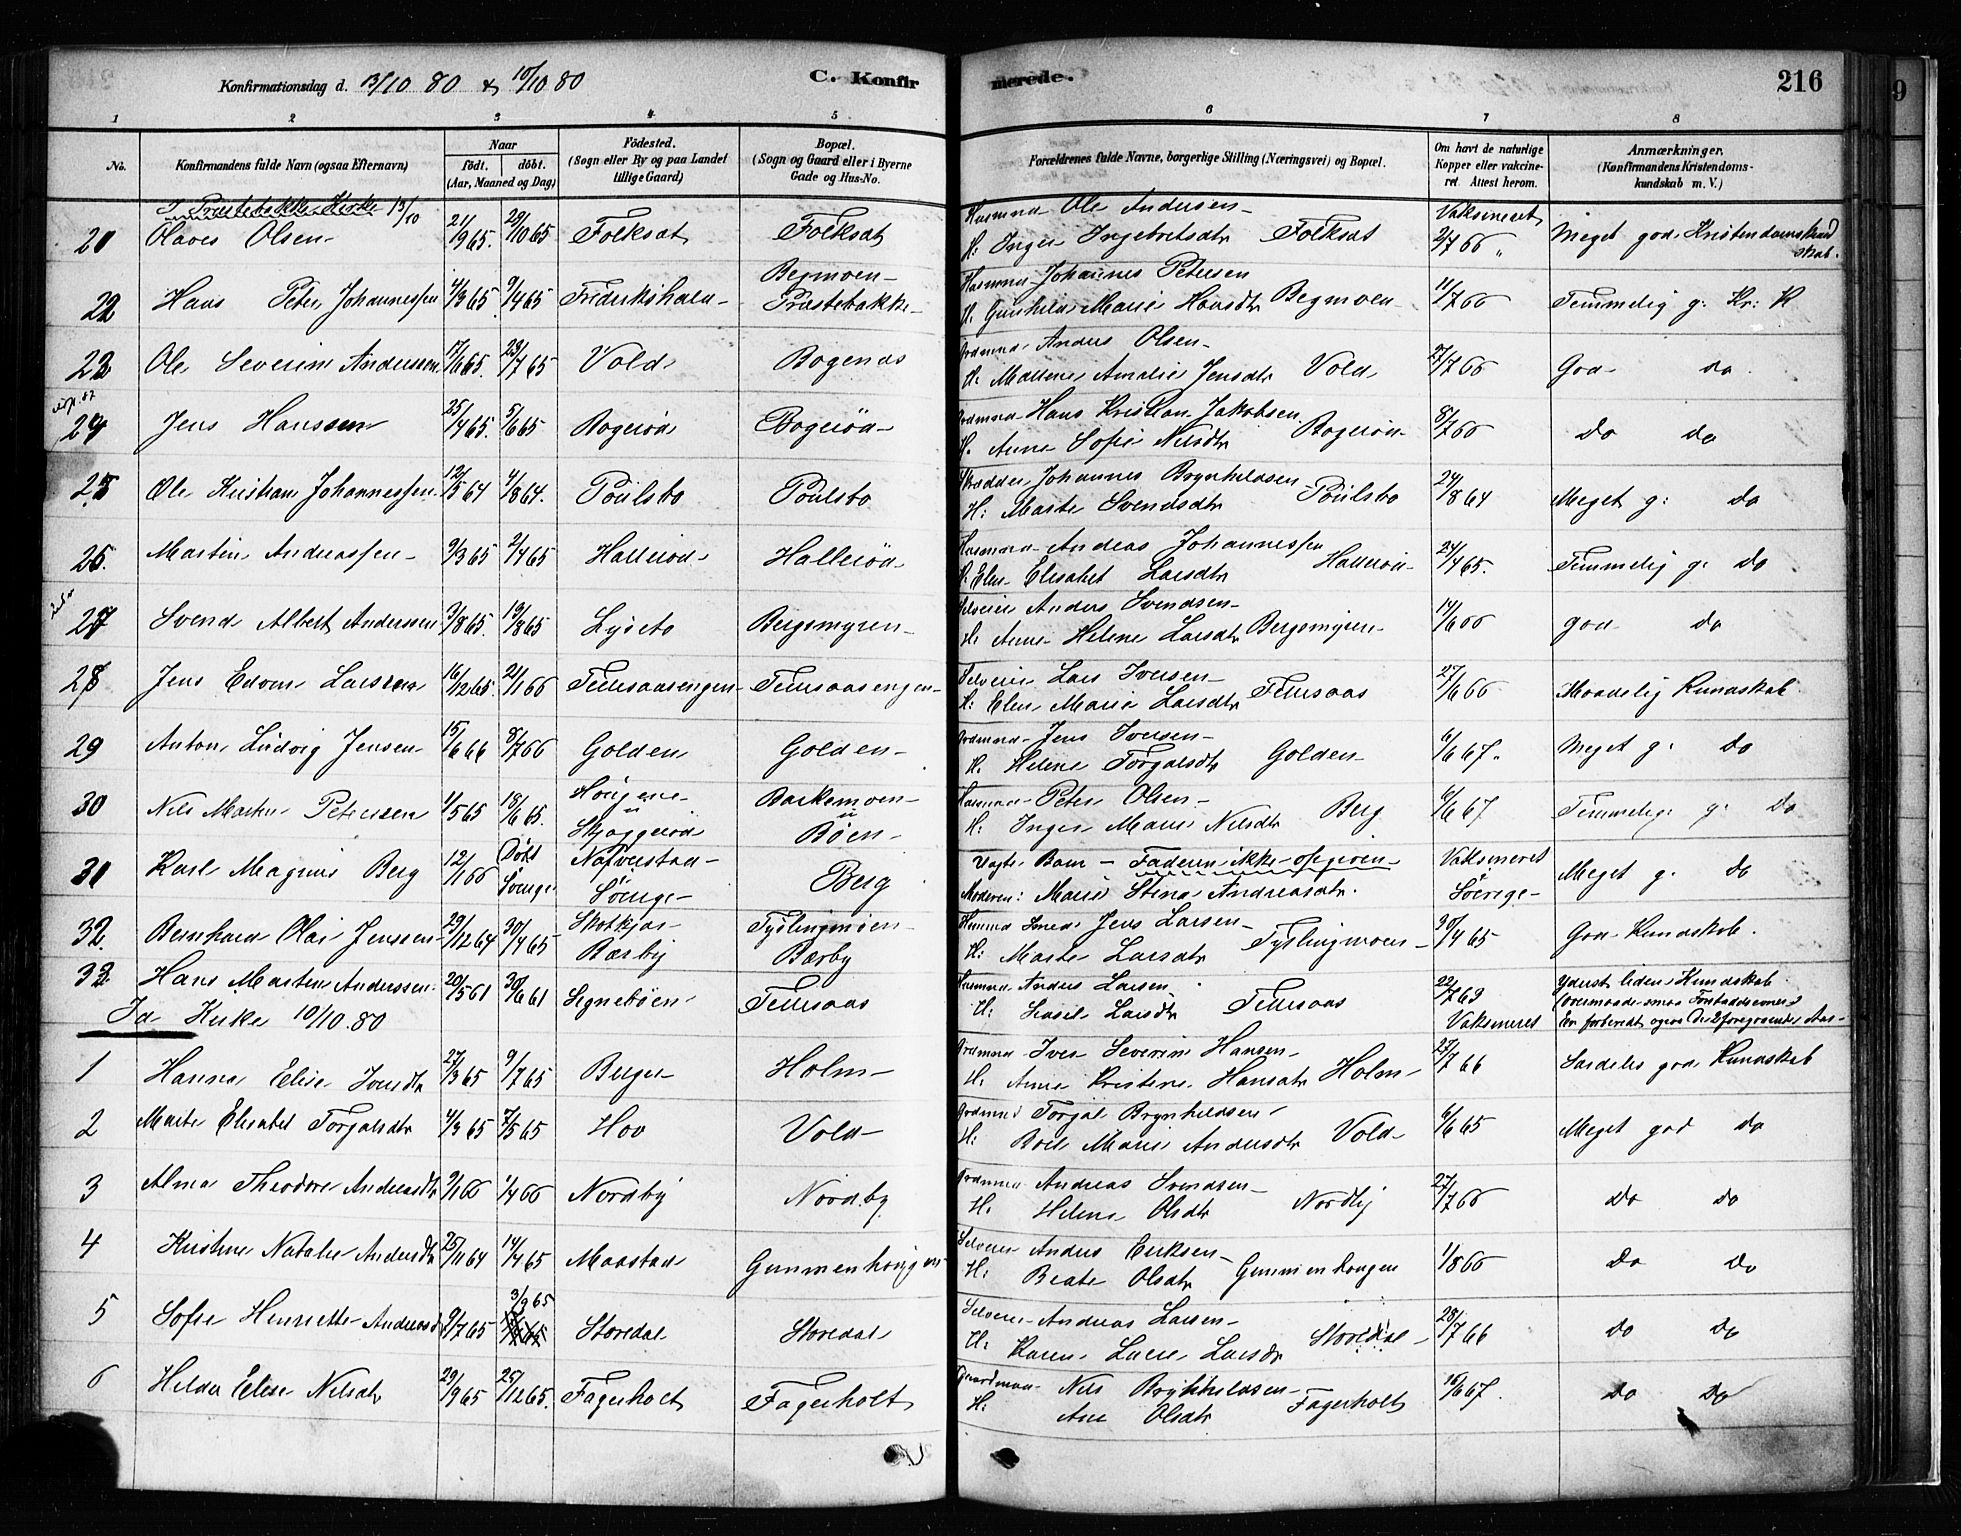 Konfirmationsdag d. 13/10 80 & 10/10 80
C. Konfirmerede.
216
1 2 3 4 5 6 7 8
No.
Konfirmandens fulde Navn (ogsaa Efternavn)
Naar
født. døbt.
(Aar, Maaned og Dag)
Födested.
(Sogn eller By og paa Landet
tillige Gaard)
Bopæl.
(Sogn og Gaard eller i Byerne
Gade og Hus-No.
Forældrenes fulde Navne, borgerlige Stilling (Næringsvei) og Bopæl.
Om havt de naturlige
Kopper eller vakcine-
ret. Attest herom.
Anmærkninger.
(Konfirmandens Kristendoms-
kundskab m. V.)
I Prestebakke Kirke 13/10
21 Olaves Olsen 21/9 65. 29/10 65 Folksat Folksat Husmand Ole Andersen H: Inger Ingebretsdtr Folksat Vaksineret 2/7 66 Meget god Kristendomskundskab.
22 Hans Peter Johannessen 4/3 65 9/4 65 Fredrikshald Begmoen Prestebakke Husmand Johannes Petersen H: Gunhild Marie Hansdtr Begmoen 11/7 66 Temmelig g: Kr: K
23 Ole Severin Anderssen 17/6 65. 23/7 65 Vold Bogenæs Grdmand Anders Olsen H: Mallene Amalie Jensdtr Vold 27/7 66 God do
24 Jens Hanssen 25/4 65. 5/6 65 Bogerød Bogerød Grdmand Hans Kristian Jakobsen H. Anne Sofie Nilsdtr Bogerød 8/7 66 do do
25 Ole Kristian Johannessen 12/5 64 4/8 64. Poulsbo Poulsbo Skrædder Johannes Brynhildsen H: Marte Svendsdtr Poulsbo 24/8 64 Meget g: do
26. Martin Andreassen 9/3 65 2/4 65 Hallerød Hallerød Husmand Andreas Johannessen H. Elen Elisabet Larsdtr Hallerød 24/4 65. Temmelig g. do
27 Svend Albert Anderssen 3/8 65. 19/8 65 Lysebo Bergsmyren Selveier Anders Svendsen H: Anne Helene Larsdtr Bergsmyren 14/6 66 god do
28 Jens Edvin Larssen 16/12 65. 21/1 66 Teiesaasengen Teiesaasengen Selveier Lars Iversen H: Elen Marie Larsdtr Teiesaas 27/6 66 Maadelig Kundskab.
29 Anton Ludvig Jensen 15/6 66 8/7 66 Golden Golden Grdmand Jens Iversen H. Helene Torgalsdtr Golden 6/6 67. Meget g: do
30 Nils Martin Peterssen 1/5 65 18/6 65. Hougene u Skjeggerød Barkemoen u Bøen Husmand Peter Olsen H: Inger Marie Nilsdtr Berg 6/6 67 Temmelig g: do
31 Karl Magnus Berg 12/1 66 Døbt Sverige Naverstad Sverige Berg Uægte Barn – Faderen ikke opgiven Moderen: Marie Stina Andreasdtr. Vaksineret Sverige Meget g. do
32. Bernhard Olai Jenssen 29/12 64 30/4 65 Skotkjær Bærby Tyslingmoen Bærby Husmand Jens Larsen H: Marte Larsdtr Tyslingmoen 30/4 65 God Kundskab.
33. Hans Martin Anderssen 20/5 61 30/6 61 Signebøen Teiesaas Husmand Anders Larsen H: Larsdtr Teiesaas 22/7 63 Vaksineret Yderst liden Kundskab
Id Kirke 10/10.80
1 Hanna Elise Iversdtr 27/3 65 9/7 65 Berger Holm Grdmand Iver Severin Hansen H. Anne Kristine Hansdtr Holm 27/7 66 Særdeles god Kundskab
2 Marte Elisabet Torgalsdtr 4/3 65 7/5 65 Hov Vold Grdmand Torgal Brynhildsen H. Boel Marie Andersdtr Vold 6/6 65 Meget god do
3 Alma Theodore Andreasdtr 9/1 66 1/4 66 Nordby Nordby Grdmand Andreas Svendsen H. Helene Olsdtr Nordby 27/7 66 do do
4 Kristine Natalie Andersdtr 25/11 64 14/4 65 Maastad Gummenhougen Selveier Anders Eriksen H: Beate Olsdtr Gummenhougen 1/8 66 do do
5 Sofie Henriette Andreasd 9/7 65 3/9 65 Storedal Storedal Selveier Andreas Larsen H: Karen Larsdtr Storedal 28/7 66 do do
6 Helda Elise Nilsdtr 29/9 65 25/12 65. Fagerholt Fagerholt Gaardmand Nils Brynhildsen H: Ane Olsdtr Fagerholt 10/6 67. do do